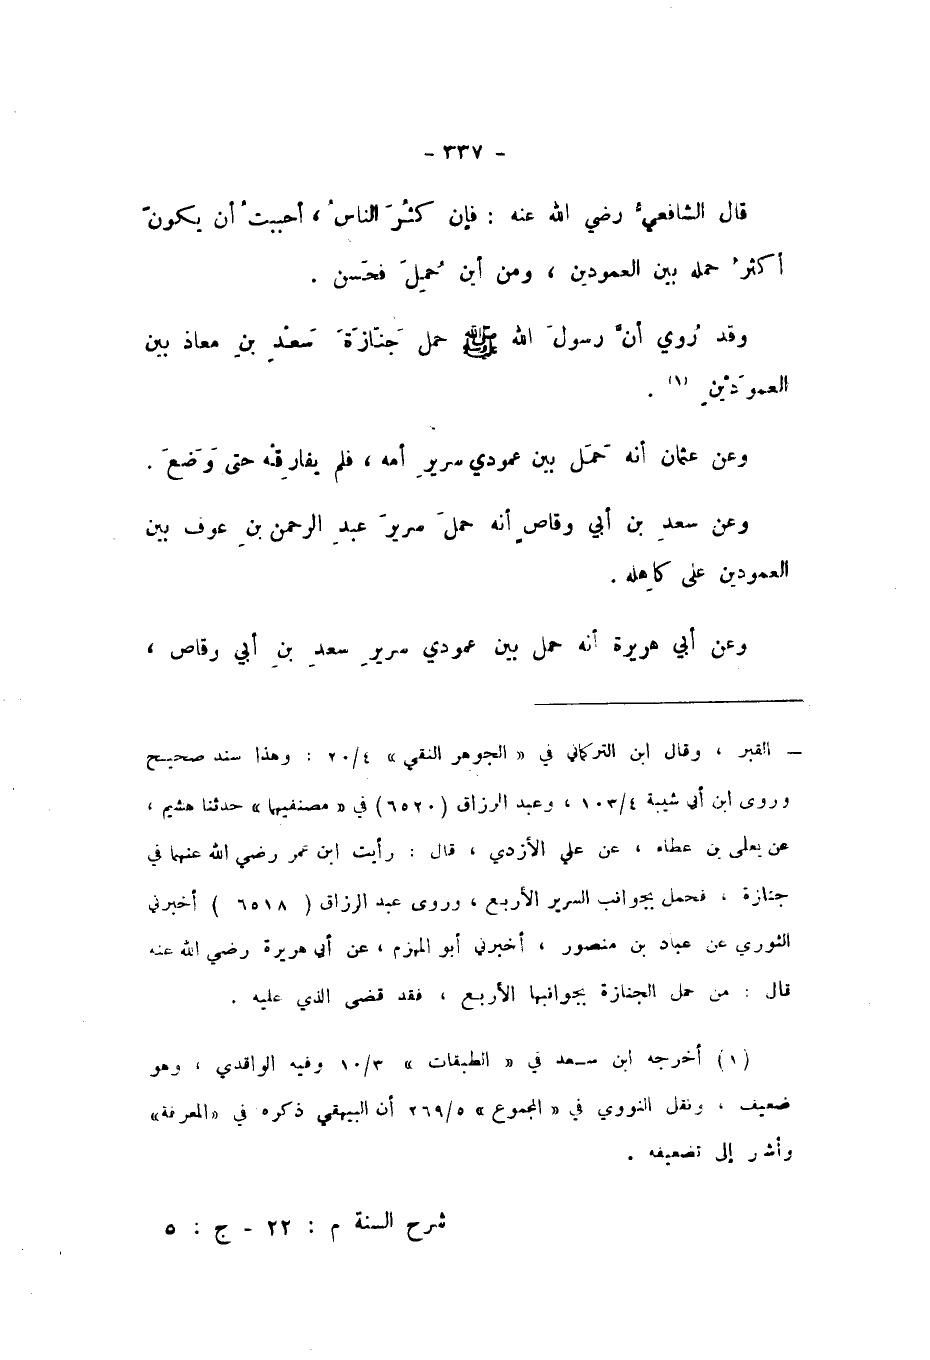 - ٣٣٧ -
قال الشافعيُّ رضي الله عنه : فإن كثُرَ الناسُ ، أحببتُ أن يكونَ
أكثرُ حمله بين العمودين ، ومن أين حُمِلَ فحَسن .
وقد رُوي أنَّ رسولَ الله ﷺ حمل جَنَازَةَ سَعْدِ بنِ معاذ بين
العمودَيْنِ (١) .
وعن عثمان أنه حَمَل بين عمودي سريرِ أمه ، فلم يفارِقْه حتى وَضَعَ .
وعن سعدِ بن أبي وقاصٍ أنه حملَ سريرَ عبدِ الرحمن بنِ عوف بين
العمودين على كاهِله .
وعن أبي هريرة أنه حمل بين عمودي سريرِ سعدِ بنِ أبي وقاص ،
ــ القبر ، وقال ابن التركماني في « الجوهر النقي » ٢٠/٤ : وهذا سند صحيح
وروى ابن أبي شيبة ١٠٣/٤ ، وعبد الرزاق (٦٥٢٠) في « مصنفيهما » حدثنا هشيم ،
عن يعلى بن عطاء ، عن علي الأزدي ، قال : رأيت ابن عمر رضي الله عنهما في
جنازة ، فحمل بجوانب السرير الأربع ، وروى عبد الرزاق ( ٦٥١٨ ) أخبرني
الثوري عن عباد بن منصور ، أخبرني أبو المهزم ، عن أبي هريرة رضي الله عنه
قال : من حمل الجنازة بجوانبها الأربع ، فقد قضى الذي عليه .
(١) أخرجه ابن سعد في « الطبقات » ١٠/٣ وفيه الواقدي ، وهو
ضعيف ، ونقل النووي في « المجموع » ٢٦٩/٥ أن البيهقي ذكره في «المعرفة»
وأشر إلى تضعيفه .
شرح السنة م : ٢٢ - ج : ٥